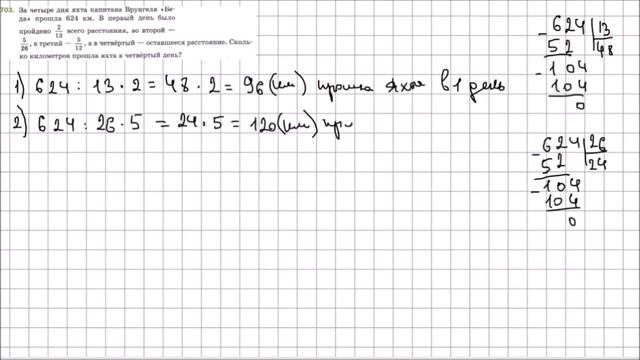 703. За четыре дня яхта капитана Врунгеля «Бе-
да» прошла 624 км. В первый день было
пройдено 2/13 всего расстояния, во второй —
5/26, в третий — 5/12, а в четвёртый — оставшееся расстояние. Сколь-
ко километров прошла яхта в четвёртый день?
1) 624 : 13 · 2 = 48 · 2 = 96 (км) прошла яхта в 1 день
2) 624 : 26 · 5 = 24 · 5 = 120 (км) пр
624 | 13
52 | 48
104
104
0
624 | 26
52 | 24
104
104
0